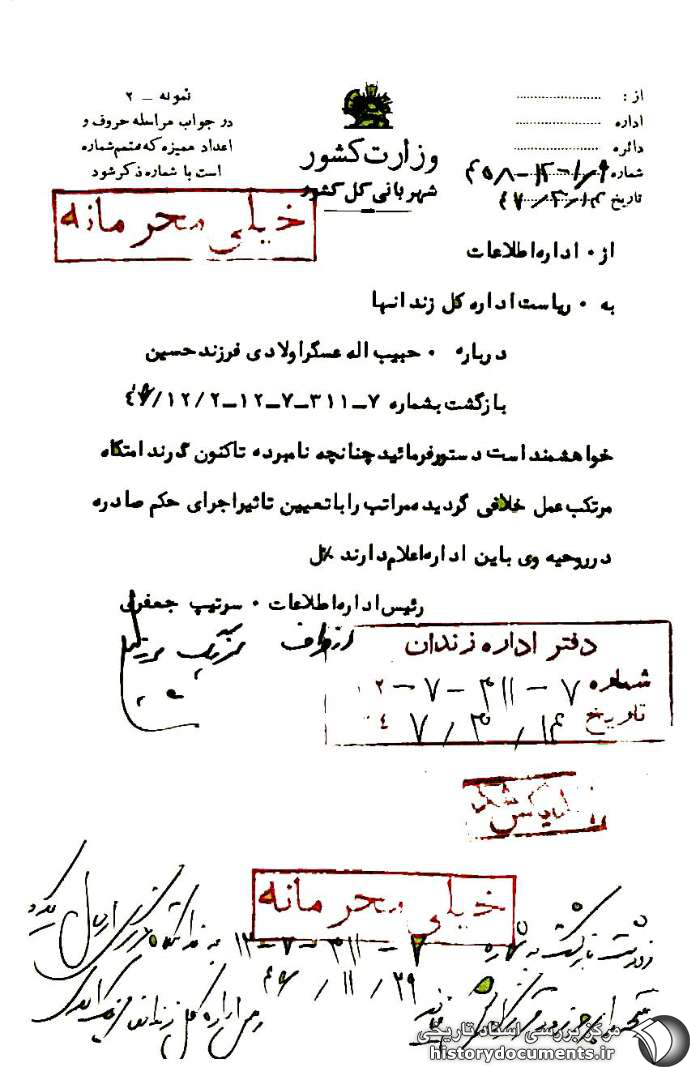 نمونه – ۲
در جواب مراسله حروف و
اعداد ممیزه که متمم شماره
است با شماره ذکر شود
وزارت کشور
شهربانی کل کشور
از :
اداره
دائره
شماره
تاریخ ۴۷/۳/۱۴
خیلی محرمانه
از • اداره اطلاعات
به • ریاست اداره کل زندانها
درباره • حبیب اله عسگراولادی فرزند حسین
بازگشت بشماره ۷–۳۱۱–۷–۱۲–۴۶/۱۲/۲
خواهشمند است دستور فرمائید چنانچه نامبرده تاکنون در ندامتگاه
مرتکب عمل خلافی گردیده مراتب را با تعیین تاثیر اجرای حکم صادره
در روحیه وی باین اداره اعلام دارند
رئیس اداره اطلاعات • سرتیپ جعفری
از طرف
دفتر اداره زندان
شماره ۷–۳۱۱–۷–۱۲
تاریخ ۴۷/۳/۱۴
خیلی محرمانه
بازگشت به شماره ۷–۳۱۱–۷–۱۲
۴۶/۱۱/۲۹
رئیس اداره کل زندان
مرکز بررسی اسناد تاریخی
historydocuments.ir